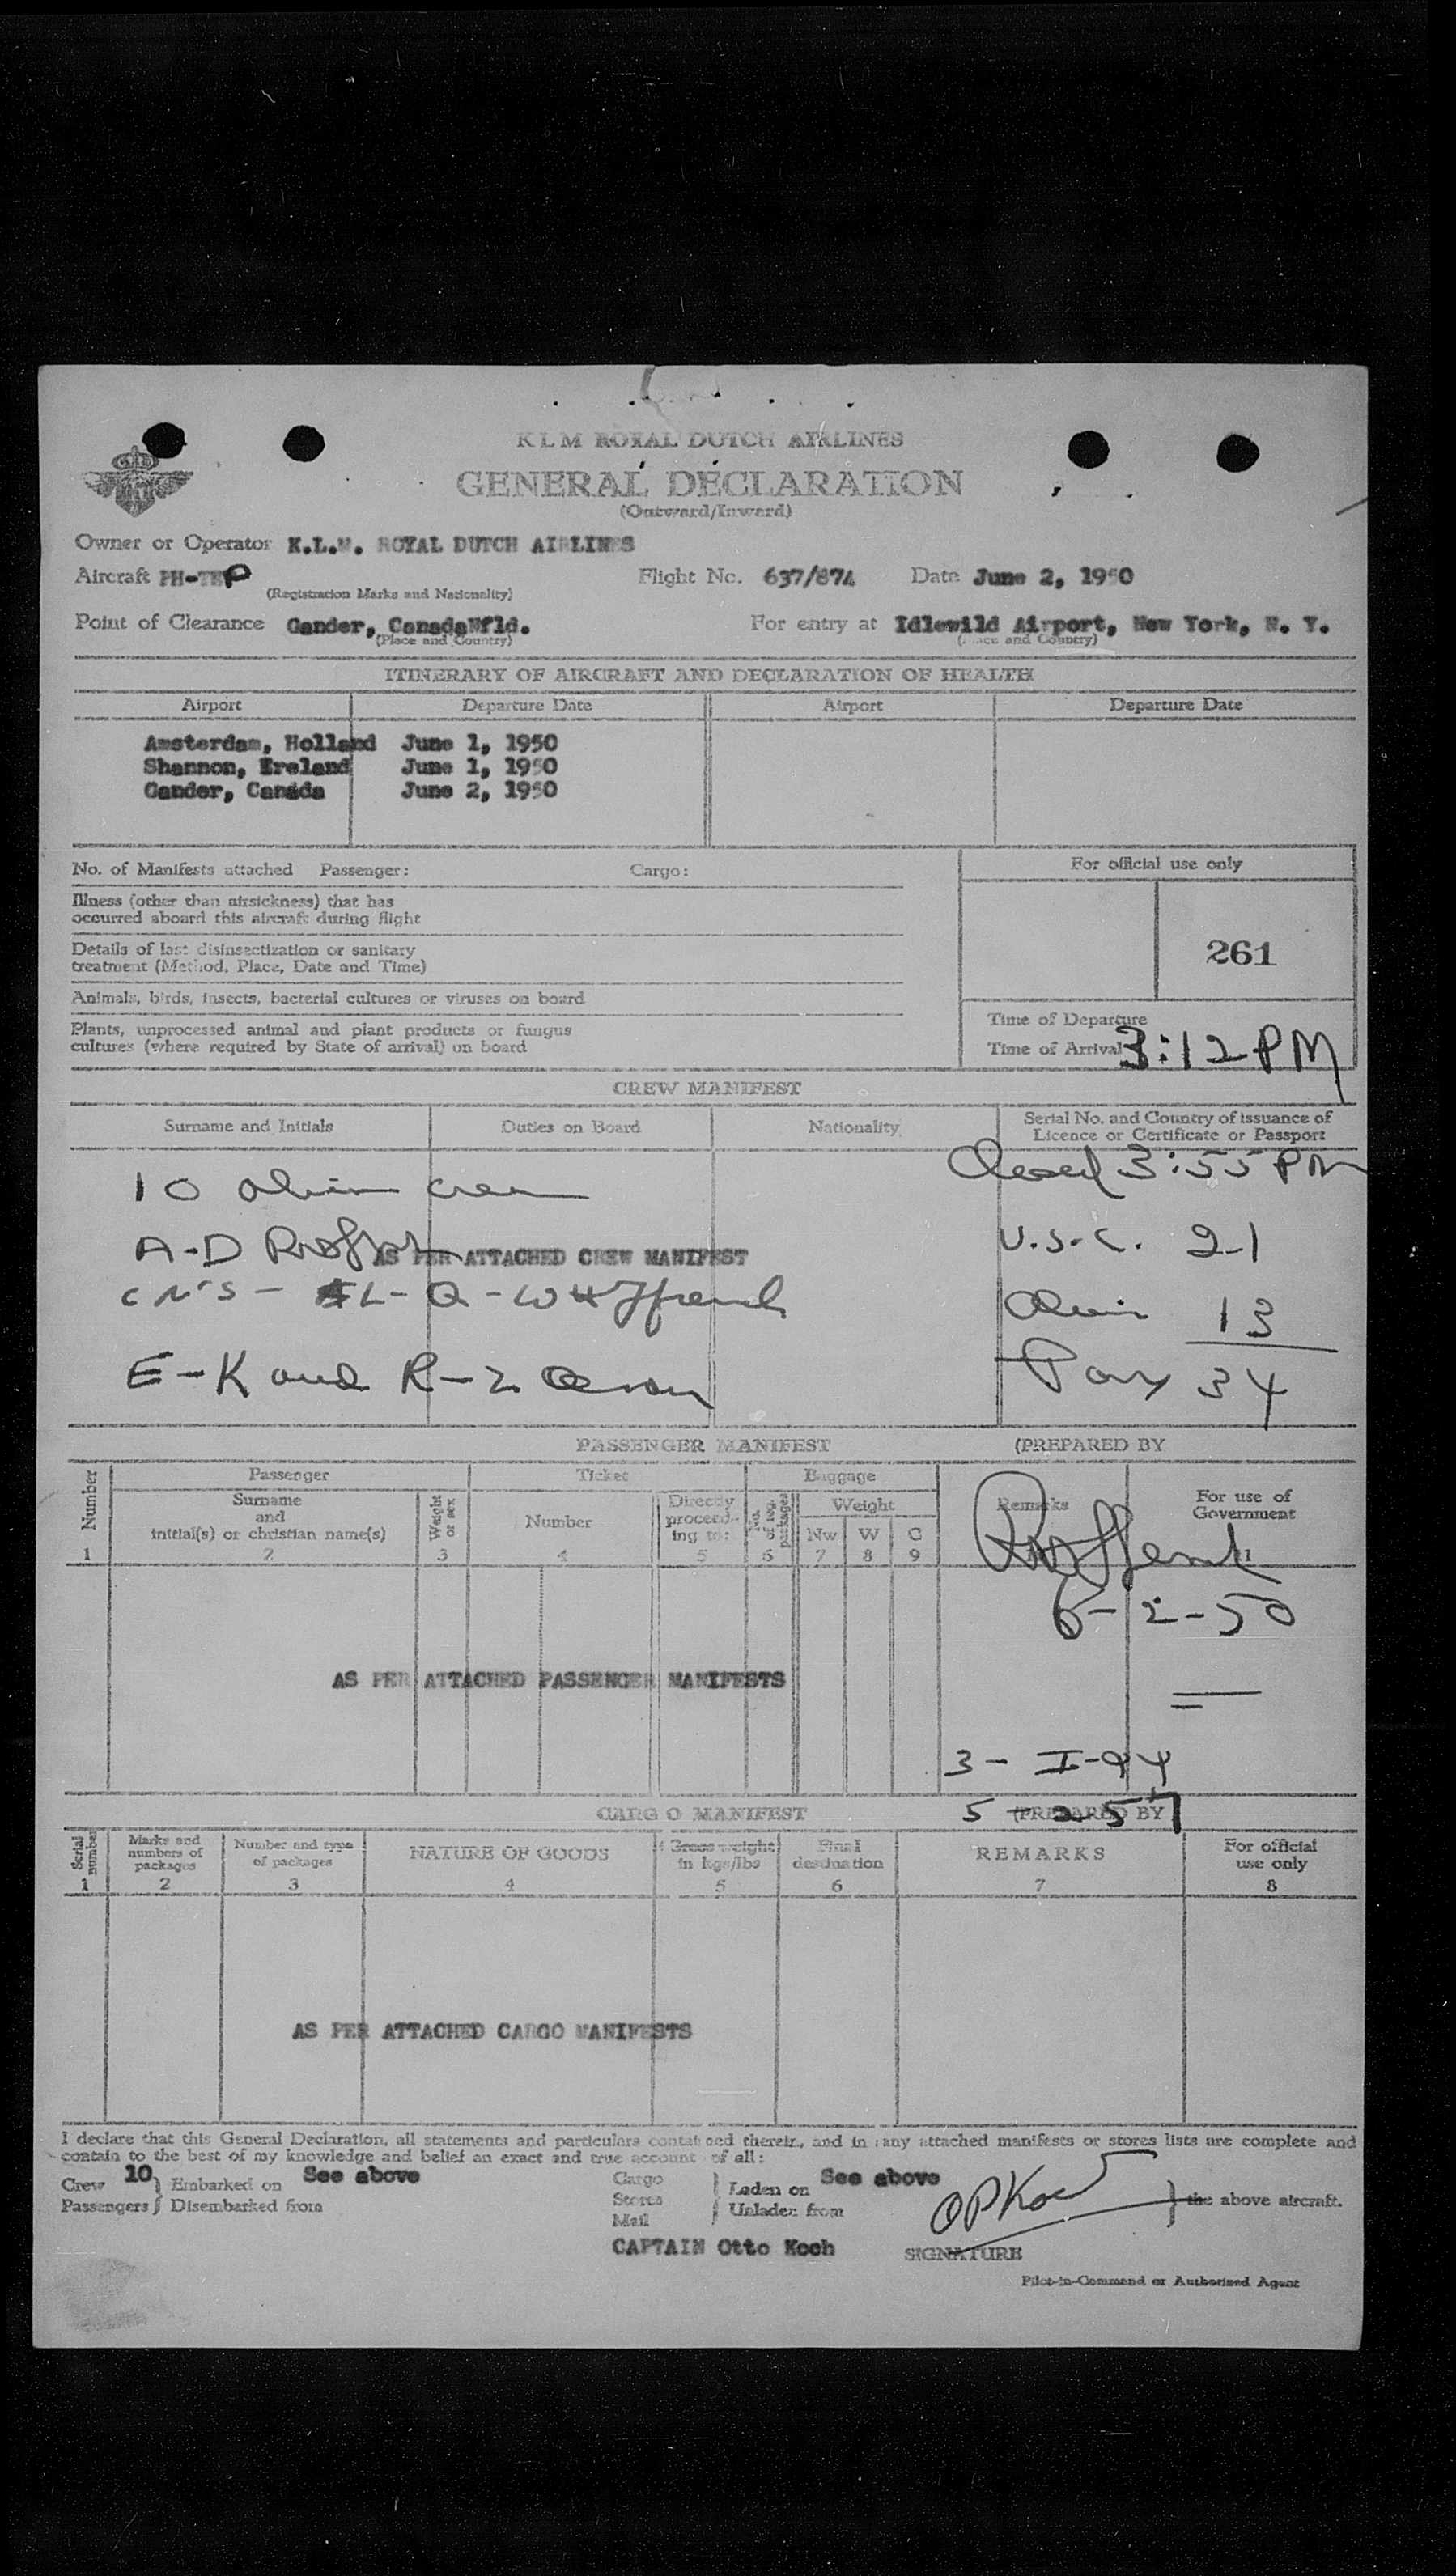 KLM ROYAL DUTCH AIRLINES
GENERAL DECLARATION
(Outward/Inward)
Owner or Operator K.L.M. ROYAL DUTCH AIRLINES
Aircraft PH-TEP Flight No. 637/874 Date June 2, 1950
(Registration Marks and Nationality)
Point of Clearance Gander, Canada Nfld. For entry at Idlewild Airport, New York, N. Y.
(Place and Country) (Place and Country)
ITINERARY OF AIRCRAFT AND DECLARATION OF HEALTH
Airport Departure Date Airport Departure Date
Amsterdam, Holland June 1, 1950
Shannon, Ereland June 1, 1950
Gander, Canada June 2, 1950
No. of Manifests attached Passenger: Cargo: For official use only
Illness (other than airsickness) that has
occurred aboard this aircraft during flight
Details of last disinsectization or sanitary
treatment (Method, Place, Date and Time)
261
Animals, birds, insects, bacterial cultures or viruses on board
Plants, unprocessed animal and plant products or fungus
cultures (where required by State of arrival) on board
Time of Departure
Time of Arrival 3:12 PM
CREW MANIFEST
Surname and Initials Duties on Board Nationality Serial No. and Country of issuance of
Licence or Certificate or Passport
Closed 3:55 PM
10 alien crew
A-D U.S.C. 21
AS PER ATTACHED CREW MANIFEST
L-Q-W
Alien 13
E-K and R-Z
Pax 34
PASSENGER MANIFEST (PREPARED BY
Number Passenger Ticket Baggage
Surname
and
initial(s) or christian name(s) Weight or sex Number Directly proceeding to: No. of reg. packages Weight Remarks For use of Government
Nw W C
1 2 3 4 5 6 7 8 9 11
6-2-50
AS PER ATTACHED PASSENGER MANIFESTS
3- I-94
5 257
CARGO MANIFEST (PREPARED BY
Serial number Marks and numbers of packages Number and type of packages NATURE OF GOODS Gross weight in kgs/lbs Final destination REMARKS For official use only
1 2 3 4 5 6 7 8
AS PER ATTACHED CARGO MANIFESTS
I declare that this General Declaration, all statements and particulars contained therein, and in any attached manifests or stores lists are complete and
contain to the best of my knowledge and belief an exact and true account of all:
Crew 10 } Embarked on See above Cargo } Laden on See above
Passengers } Disembarked from Stores } Unladen from } the above aircraft.
Mail
OPKoch
CAPTAIN Otto Koch SIGNATURE
Pilot-in-Command or Authorized Agent